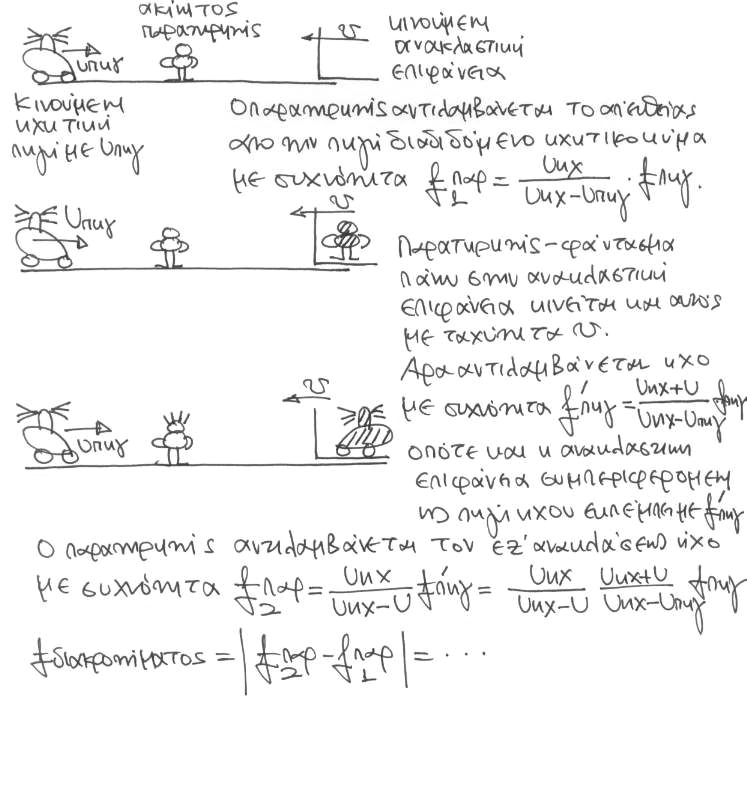 ακίνητος
παρατηρητής
υ
κινούμενη
ανακλαστική
επιφάνεια
υπηγ
Κινούμενη
ηχητική
πηγή με υπηγ
Ο παρατηρητής αντιλαμβάνεται το απ'ευθείας
από την πηγή διαδιδόμενο ηχητικό κύμα
με συχνότητα f παρ 1 = υηχ / υηχ-υπηγ · fπηγ.
υπηγ
υ
Παρατηρητής-φάντασμα
πάνω στην ανακλαστική
επιφάνεια κινείται και αυτός
με ταχύτητα υ.
Άρα αντιλαμβάνεται ήχο
με συχνότητα f'πηγ = υηχ+υ / υηχ-υπηγ fπηγ
υπηγ
υ
οπότε και η ανακλαστική
επιφάνεια συμπεριφερόμενη
ως πηγή ήχου εκπέμπει με f'πηγ
Ο παρατηρητής αντιλαμβάνεται τον εξ'ανακλάσεως ήχο
με συχνότητα f παρ 2 = υηχ / υηχ-υ f'πηγ = υηχ / υηχ-υ υηχ+υ / υηχ-υπηγ fπηγ
fδιακροτήματος = |f παρ 2 - f παρ 1| = ...